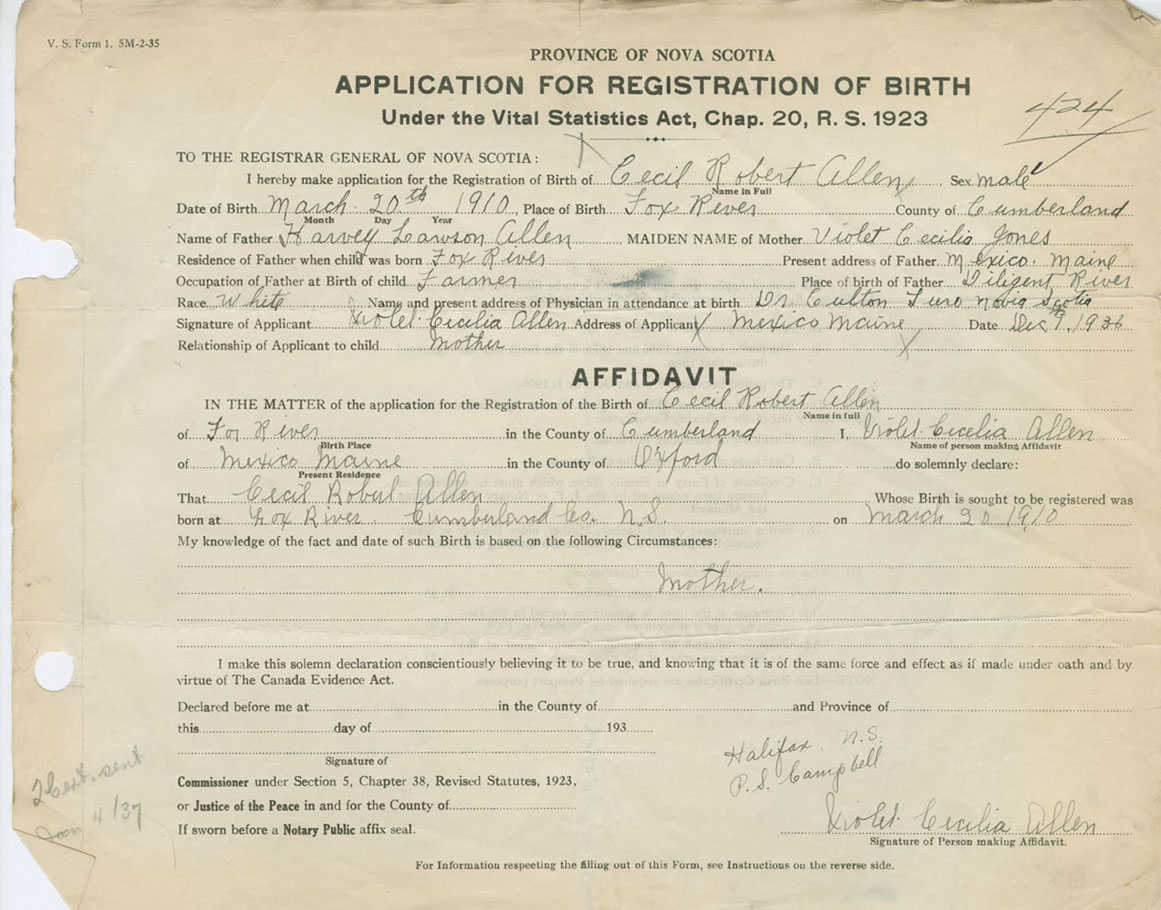 V. S. Form 1. 5M-2-35
PROVINCE OF NOVA SCOTIA
APPLICATION FOR REGISTRATION OF BIRTH
Under the Vital Statistics Act, Chap. 20, R. S. 1923
424
TO THE REGISTRAR GENERAL OF NOVA SCOTIA:
I hereby make application for the Registration of Birth of Cecil Robert Allen Sex male
Name in Full
Date of Birth March 20th 1910, Place of Birth Fox River County of Cumberland
Month Day Year
Name of Father Harvey Lawson Allen MAIDEN NAME of Mother Violet Cecilia Jones
Residence of Father when child was born Fox River Present address of Father Mexico. Maine
Occupation of Father at Birth of child Farmer Place of birth of Father Diligent River
Race White Name and present address of Physician in attendance at birth Dr. Culton Turo Novia Scotia
Signature of Applicant Violet Cecilia Allen Address of Applicant Mexico Maine Date Dec 7, 1936
Relationship of Applicant to child Mother
AFFIDAVIT
IN THE MATTER of the application for the Registration of the Birth of Cecil Robert Allen
Name in full
of Fox River in the County of Cumberland I, Violet Cecelia Allen
Birth Place Name of person making Affidavit
of Mexico Maine in the County of Oxford do solemnly declare:
Present Residence
That Cecil Robert Allen Whose Birth is sought to be registered was
born at Fox River. Cumberland Co. N.S. on March 20 1910
My knowledge of the fact and date of such Birth is based on the following Circumstances:
Mother.
I make this solemn declaration conscientiously believing it to be true, and knowing that it is of the same force and effect as if made under oath and by
virtue of The Canada Evidence Act.
Declared before me at in the County of and Province of
this day of 193
Signature of
Halifax, N.S.
P.S. Campbell
Commissioner under Section 5, Chapter 38, Revised Statutes, 1923,
or Justice of the Peace in and for the County of
If sworn before a Notary Public affix seal.
2 Cert. sent
Jan 4/37
Violet Cecilia Allen
Signature of Person making Affidavit.
For Information respecting the filling out of this Form, see Instructions on the reverse side.